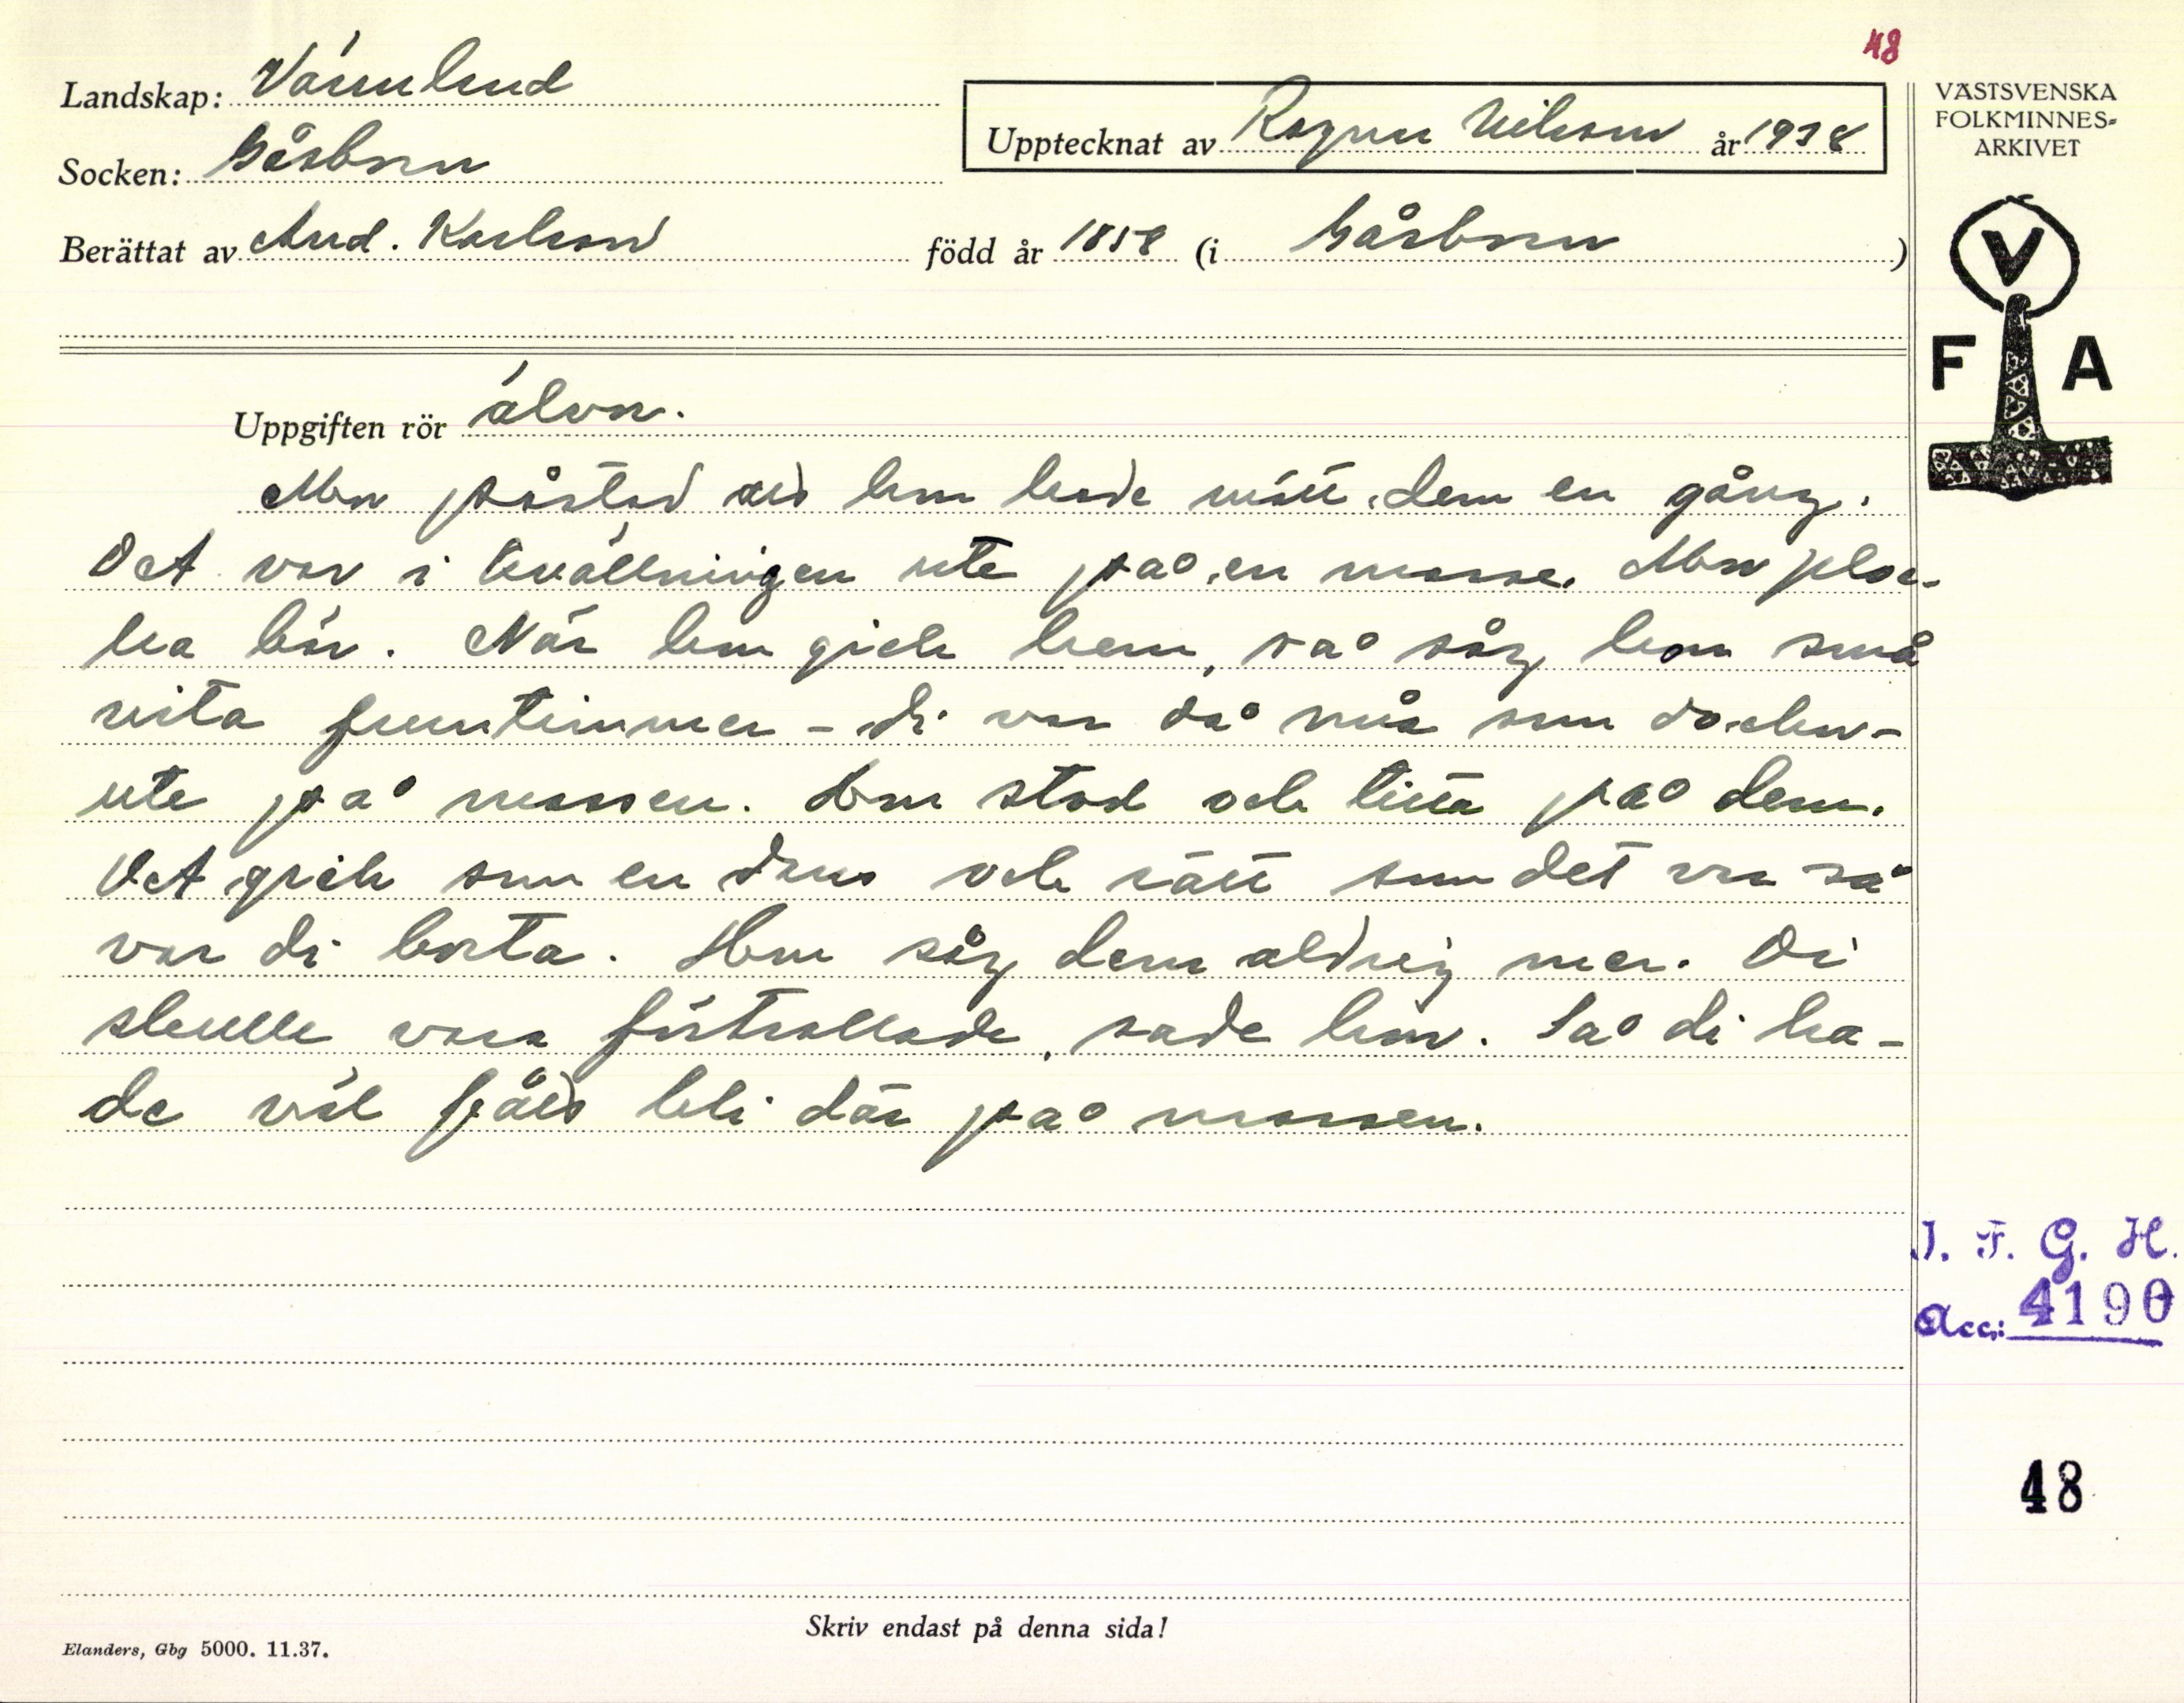 48
Landskap: Värmland
VÄSTSVENSKA
FOLKMINNES-
ARKIVET
Upptecknat av Ragnar Nilsson år 1938
Socken: Gåsborn
Berättat av And. Karlsson född år 1858 (i Gåsborn )
V
F A
Uppgiften rör älvor.
Mor påstod att hon hade mött dem en gång.
Det var i kvällningen ute på en mosse. Mor ploc-
ka bär. När hon gick hem, så såg hon små
vita fruntimmer - di var då små som dockor -
ute på mossen. Hon stod och titta på dem.
Det gick som en dans och rätt som det var så
var di borta. Hon såg dem aldrig mer. Di
skulle vara förtrollade, sade hon. Så di ha-
de väl fått bli där på mossen.
I. F. G. H.
Acc: 4190
48
Skriv endast på denna sida!
Elanders, Gbg 5000. 11.37.